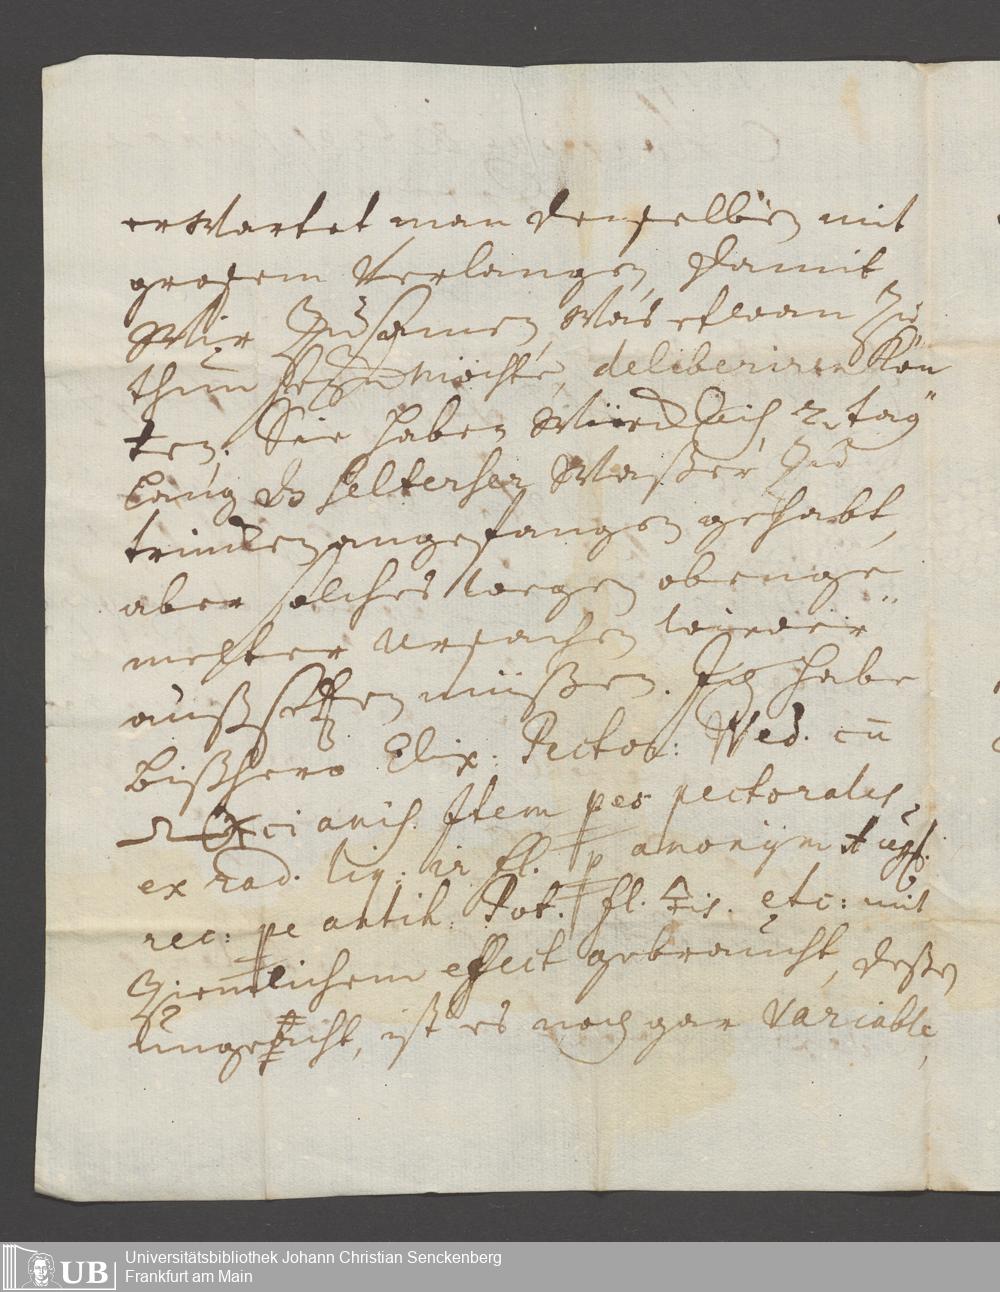 erwartet man denselben mit
großem Verlangen, damit
Wir Zusamen, was etwan zu
thun seyn möchte, deliberiren Kön
ten. Sie haben Würcklich 2. tag
lang ds selterser Waßer zu
trincken angefangen gehabt,
aber solches wegen obenge
melter Ursachen wieder
außsetzen müßen. Ich habe
bißhero Elix: Pector: Wed. cū
ci anis. Item pectorales
ex rad. liq. ir fl. anonym
rec: antih. Pot. fl. etc: mit
Ziemlichem effect gebraucht, deßen
ungeacht, ist es noch gar variable,
UB
Universitätsbibliothek Johann Christian Senckenberg
Frankfurt am Main